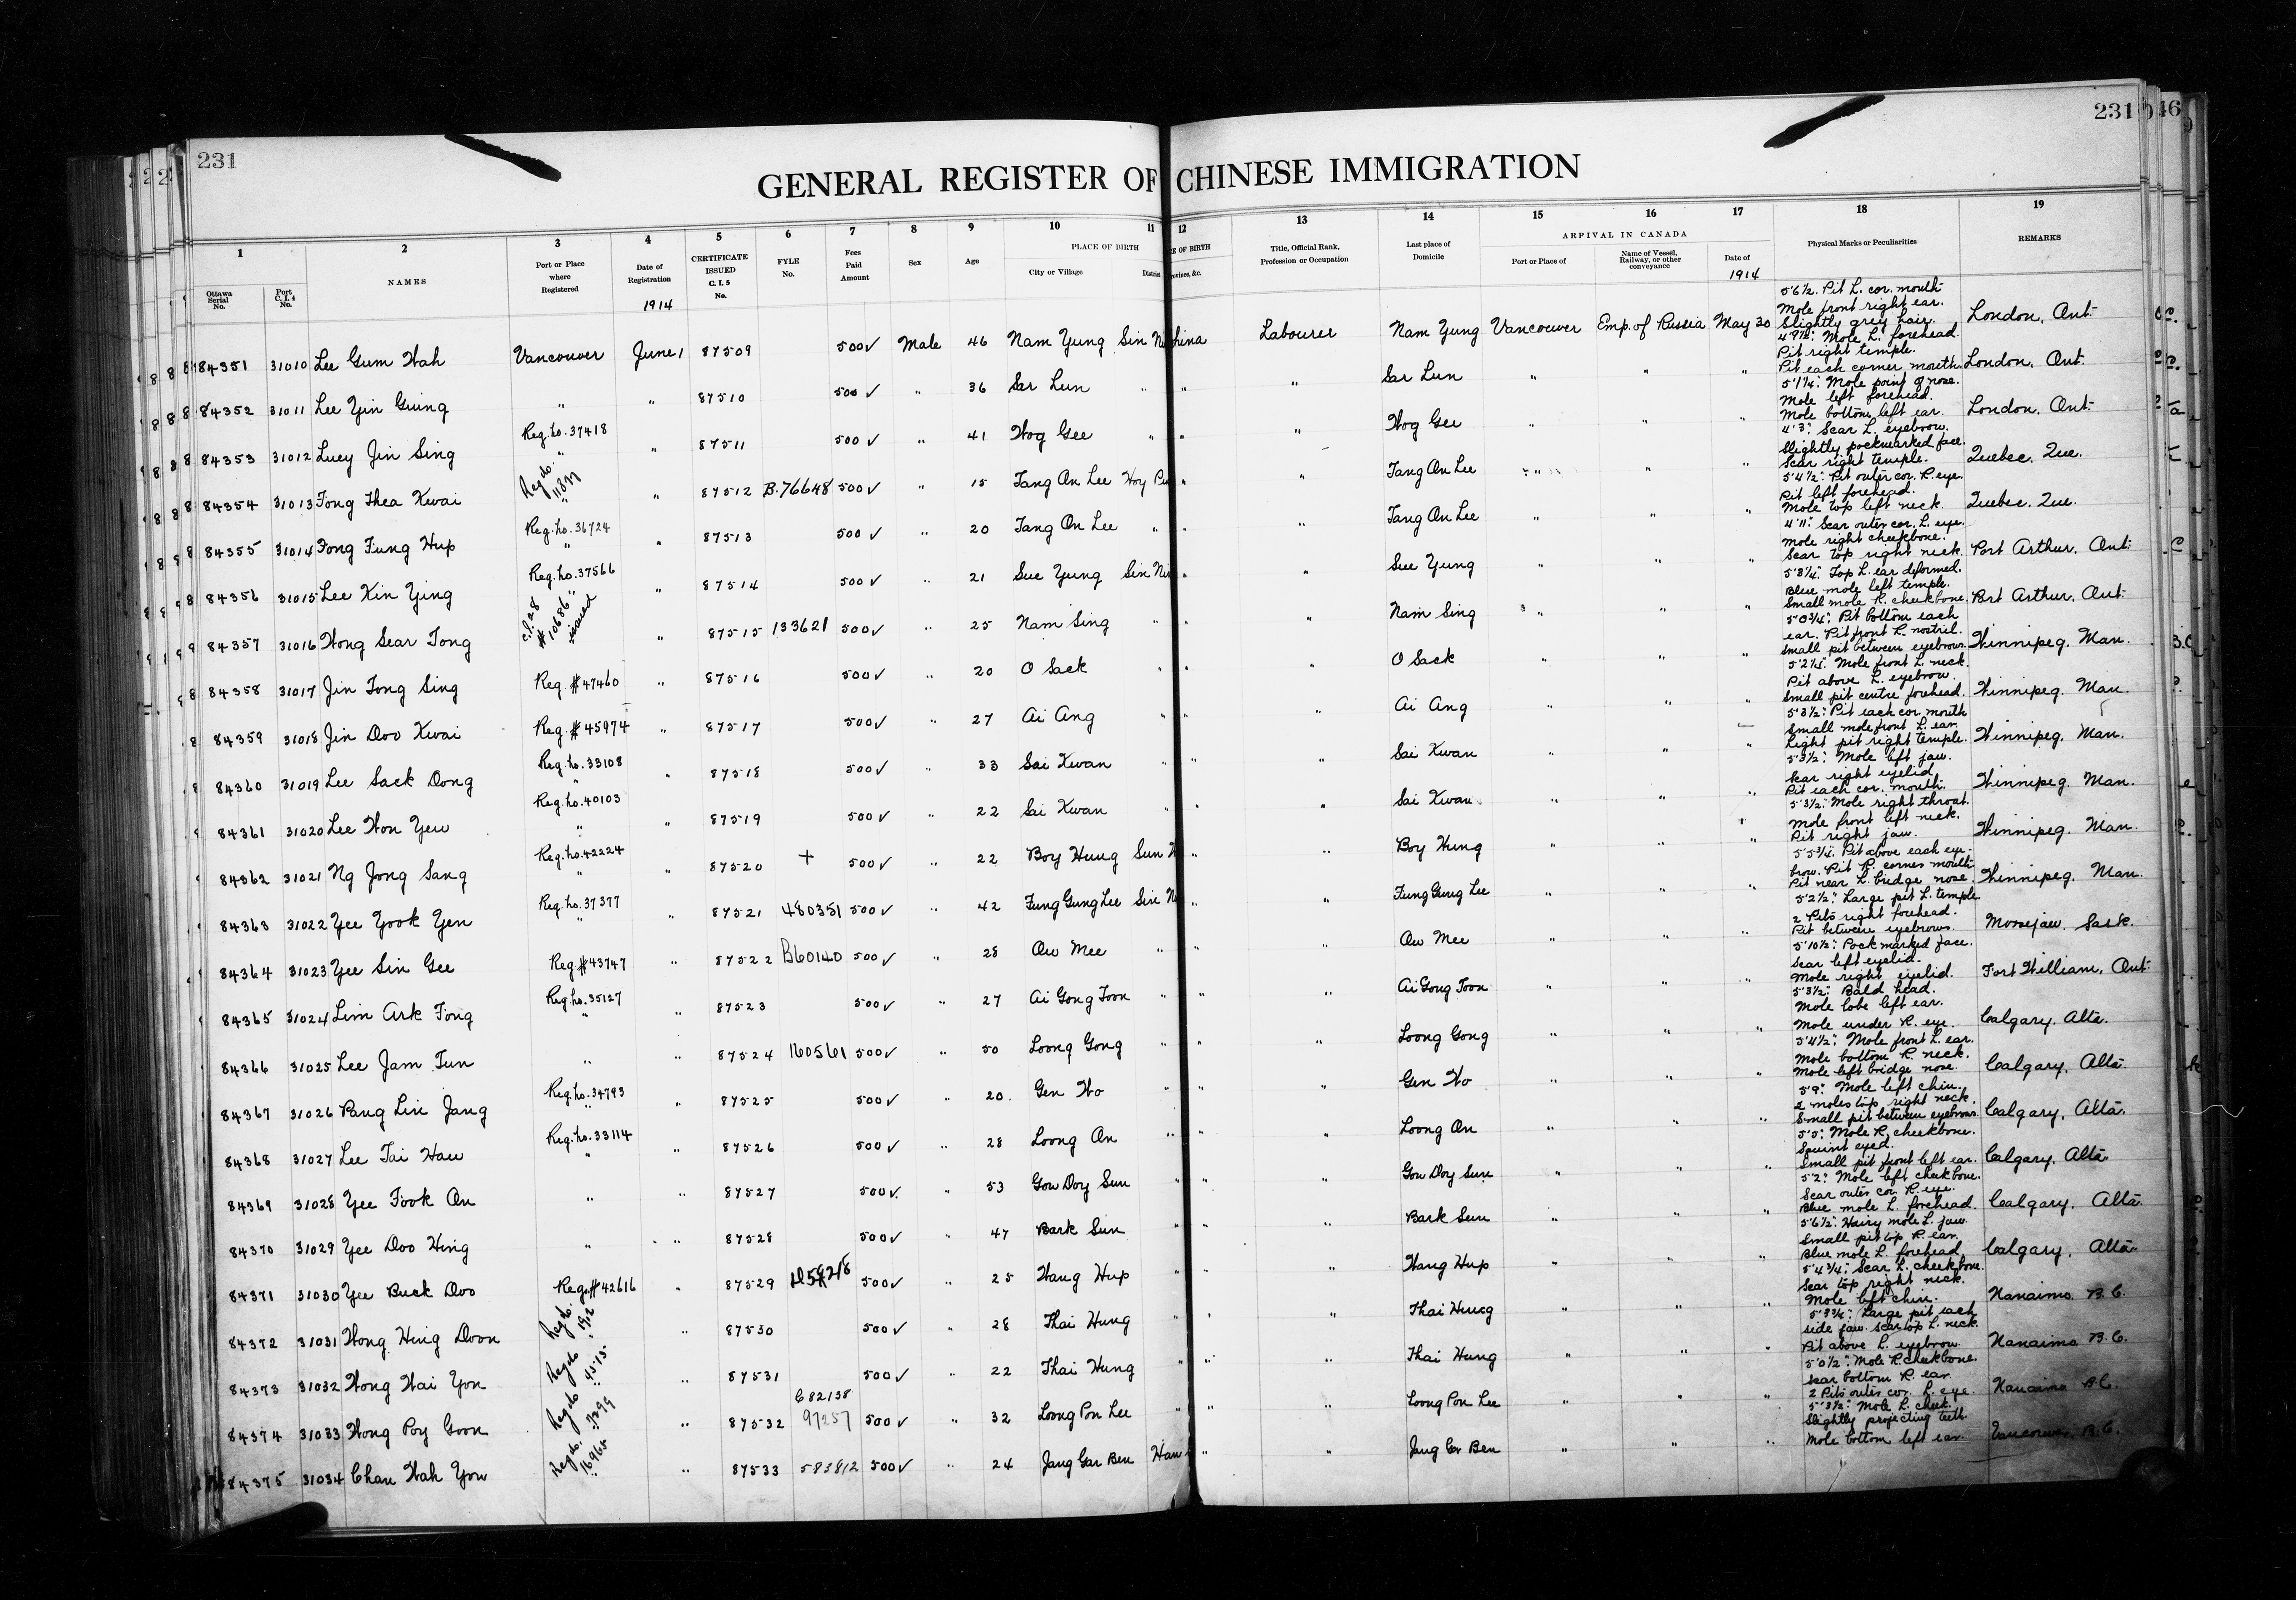 231
231
46
GENERAL REGISTER OF CHINESE IMMIGRATION
1 2 3 4 5 6 7 8 9 10 11 12 13 14 15 16 17 18 19
Ottawa Serial No.
Port C. I. 4 No.
NAMES
Port or Place where Registered
Date of Registration
1914
CERTIFICATE ISSUED C. I. 5 No.
FYLE No.
Fees Paid Amount
Sex
Age
PLACE OF BIRTH
City or Village
District
E OF BIRTH
rovince, &c.
Title, Official Rank, Profession or Occupation
Last place of Domicile
ARRIVAL IN CANADA
Port or Place of
Name of Vessel, Railway, or other conveyance
Date of
1914
Physical Marks or Peculiarities
REMARKS
84351 31010 Lee Gum Wah Vancouver June 1 87509 500 ✓ Male 46 Nam Yung Sin Ni China Labourer Nam Yung Vancouver Emp. of Russia May 30 5'6½. Pit L. cor. mouth Mole front right ear. Slightly grey hair. London, Ont.
84352 31011 Lee Yin Guing " " 87510 500 ✓ " 36 Sar Lun " " " Sar Lun " " " 4'9½". Mole L. forehead Pit right temple. Pit each corner mouth. London, Ont.
84353 31012 Luey Jin Sing Reg. No. 37418 " " 87511 500 ✓ " 41 Wog Gee " " " Wog Gee " " " 5'1¼". Mole point of nose. Mole left forehead. Mole bottom left ear. London, Ont.
84354 31013 Fong Thea Kwai " " 87512 B.76648 500 ✓ " 15 Tang On Lee Hoy Pi " " Tang On Lee " " " 4'3". Scar L. eyebrow. Slightly pockmarked face. Scar right temple. Quebec, Que.
84355 31014 Fong Fung Hup Reg. No. 36724 " " 87513 500 ✓ " 20 Tang On Lee " " " Tang On Lee " " " 5'4½". Pit outer cor. R. eye. Pit left forehead. Mole top left neck. Quebec, Que.
84356 31015 Lee Kin Ying Reg. No. 37566 " " 87514 500 ✓ " 21 Sue Yung Sin Nin " " Sue Yung " " " 4'11". Scar outer cor. L. eye. Mole right cheekbone. Scar top right neck. Port Arthur, Ont.
84357 31016 Wong Sear Tong C.I.28 #10686 issued " 87515 133621 500 ✓ " 25 Nam Sing " " " Nam Sing " " " 5'3¼". Top L. ear deformed. Blue mole left temple. Small mole R. cheekbone. Port Arthur, Ont.
84358 31017 Jin Tong Sing Reg. #47460 " 87516 500 ✓ " 20 O Sack " " " O Sack " " " 5'0¾". Pit bottom each ear. Pit front R. nostril. Small pit between eyebrows. Winnipeg, Man.
84359 31018 Jin Doo Kwai Reg. #45974 " 87517 500 ✓ " 27 Ai Ang " " " Ai Ang " " " 5'2¼". Mole front L. neck. Pit above L. eyebrow. Small pit centre forehead. Winnipeg, Man.
84360 31019 Lee Sack Dong Reg. No. 33108 " " 87518 500 ✓ " 33 Sai Kwan " " " Sai Kwan " " " 5'3½". Pit each cor. mouth Small mole front L. ear. Light pit right temple. Winnipeg, Man.
84361 31020 Lee Won Yew Reg. No. 40103 " " 87519 500 ✓ " 22 Sai Kwan " " " Sai Kwan " " " 5'3½". Mole left jaw. Scar right eyelid. Pit each cor. mouth. Winnipeg, Man.
84362 31021 Ng Jong Sang Reg. No. 42224 " " 87520 + 500 ✓ " 22 Boy Hung Sun " " Boy Hung " " " 5'3½". Mole right throat. Mole front left neck. Pit right jaw. Winnipeg, Man.
84363 31022 Yee Yook Yen Reg. No. 37377 " " 87521 480351 500 ✓ " 42 Fung Gung Lee Sin Ni " " Fung Gung Lee " " " 5'5¾". Pit above each eyebrow. Pit R. corner mouth. Pit near L. bridge nose. Winnipeg, Man.
84364 31023 Yee Sin Gee Reg. #43747 " 87522 B60140 500 ✓ " 28 Ow Mee " " " Ow Mee " " " 5'2½". Large pit L. temple. 2 Pits right forehead. Pit between eyebrows. Moosejaw, Sask.
84365 31024 Lim Ark Fong Reg. No. 35127 " " 87523 500 ✓ " 27 Ai Gong Toon " " " Ai Gong Toon " " " 5'10½". Pock marked face. Scar left eyelid. Mole right eyelid. Fort William, Ont.
84366 31025 Lee Jam Tun " " 87524 160561 500 ✓ " 50 Loong Gong " " " Loong Gong " " " 5'3½". Bald head. Mole lobe left ear. Mole under R. eye. Calgary, Alta.
84367 31026 Pang Lin Jang Reg. No. 34793 " " 87525 500 ✓ " 20. Gen Wo " " " Gen Wo " " " 5'4½". Mole front L. ear. Mole bottom R. neck. Mole left bridge nose. Calgary, Alta.
84368 31027 Lee Tai Haw Reg. No. 33114 " " 87526 500 ✓ " 28 Loong On " " " Loong On " " " 5'9". Mole left chin. 2 moles top right neck. Small pit between eyebrows. Calgary, Alta.
84369 31028 Yee Fook On " " 87527 500 ✓ " 53 Gow Doy Sun " " " Gow Doy Sun " " " 5'5". Mole R. cheekbone. Squint eyed. Small pit front left ear. Calgary, Alta.
84370 31029 Yee Doo Hing " " 87528 500 ✓ " 47 Bark Sun " " " Bark Sun " " " 5'2". Mole left cheekbone. Scar outer cor. R. eye. Blue mole L. forehead. Calgary, Alta.
84371 31030 Yee Buck Doo Reg. #42616 " 87529 500 ✓ " 25 Hang Hup " " " Hang Hup " " " 5'6½". Hairy mole L. jaw. Small pit top R. ear. Blue mole L. forehead. Calgary, Alta.
84372 31031 Wong Hing Doon " " 87530 500 ✓ " 28 Thai Hung " " " Thai Hung " " " 5'4¾". Scar L. cheekbone. Scar top right neck. Mole left chin. Nanaimo B.C.
84373 31032 Wong Wai Yon " " 87531 500 ✓ " 22 Thai Hung " " " Thai Hung " " " 5'3¾". Large pit each side jaw. Scar top L. neck. Pit above L. eyebrow. Nanaimo B.C.
84374 31033 Wong Poy Goon " " 87532 682138 97257 500 ✓ " 32 Loong Pon Lee " " " Loong Pon Lee " " " 5'0½". Mole R. cheekbone. Scar bottom R. ear. 2 Pits outer cor. L. eye. Nanaimo B.C.
84375 31034 Chan Wah Yow Reg. No. 16965 " " 87533 583812 500 ✓ " 24 Jang Gar Ben " " Jang Gar Ben " " " 5'3½". Mole L. cheek. Slightly projecting teeth. Mole bottom left ear. Vancouver, B.C.